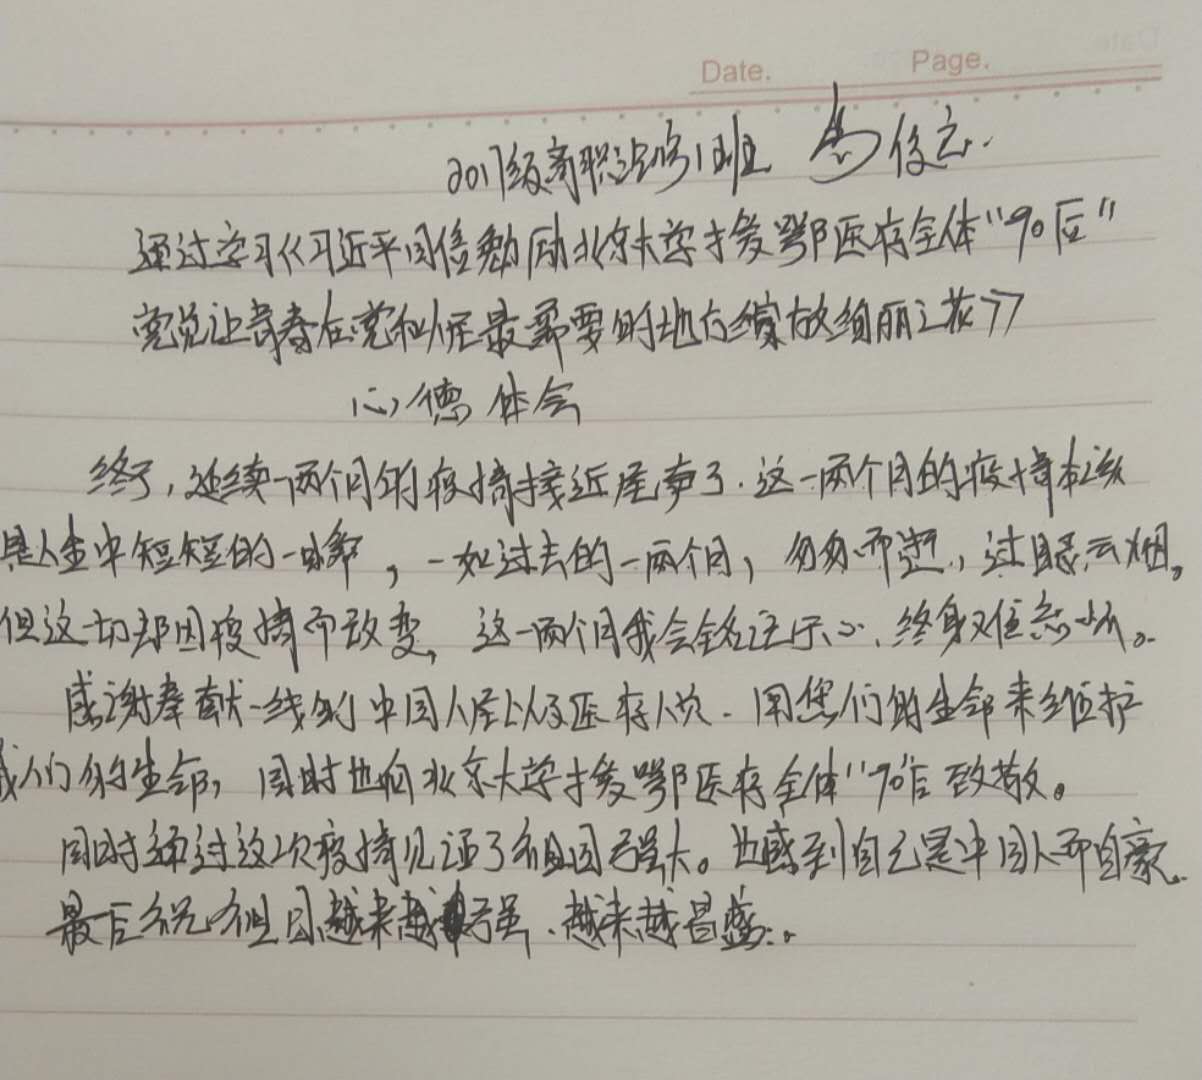 Date. Page.
2017级高职 1班 马俊
通过学习《习近平回信勉励北京大学援鄂医疗全体“90后”
党员让青春在党和人民最需要的地方绽放绚丽之花》
心德体会
终于,延续一两个月的疫情接近尾声了.这一两个月的疫情本该
是人生中短短的一瞬,一如过去的一两个月,匆匆而逝,过眼云烟。
但这一切却因疫情而改变,这一两个月我会铭记于心.终身难忘怀。
感谢奉献一线的中国人民以及医疗人员.用您们的生命来维护
我们的生命,同时也向北京大学援鄂医疗全体“90后致敬。
同时通过这次疫情见证了祖国强大。也感到自己是中国人而自豪.
最后祝祖国越来越强.越来越昌盛。